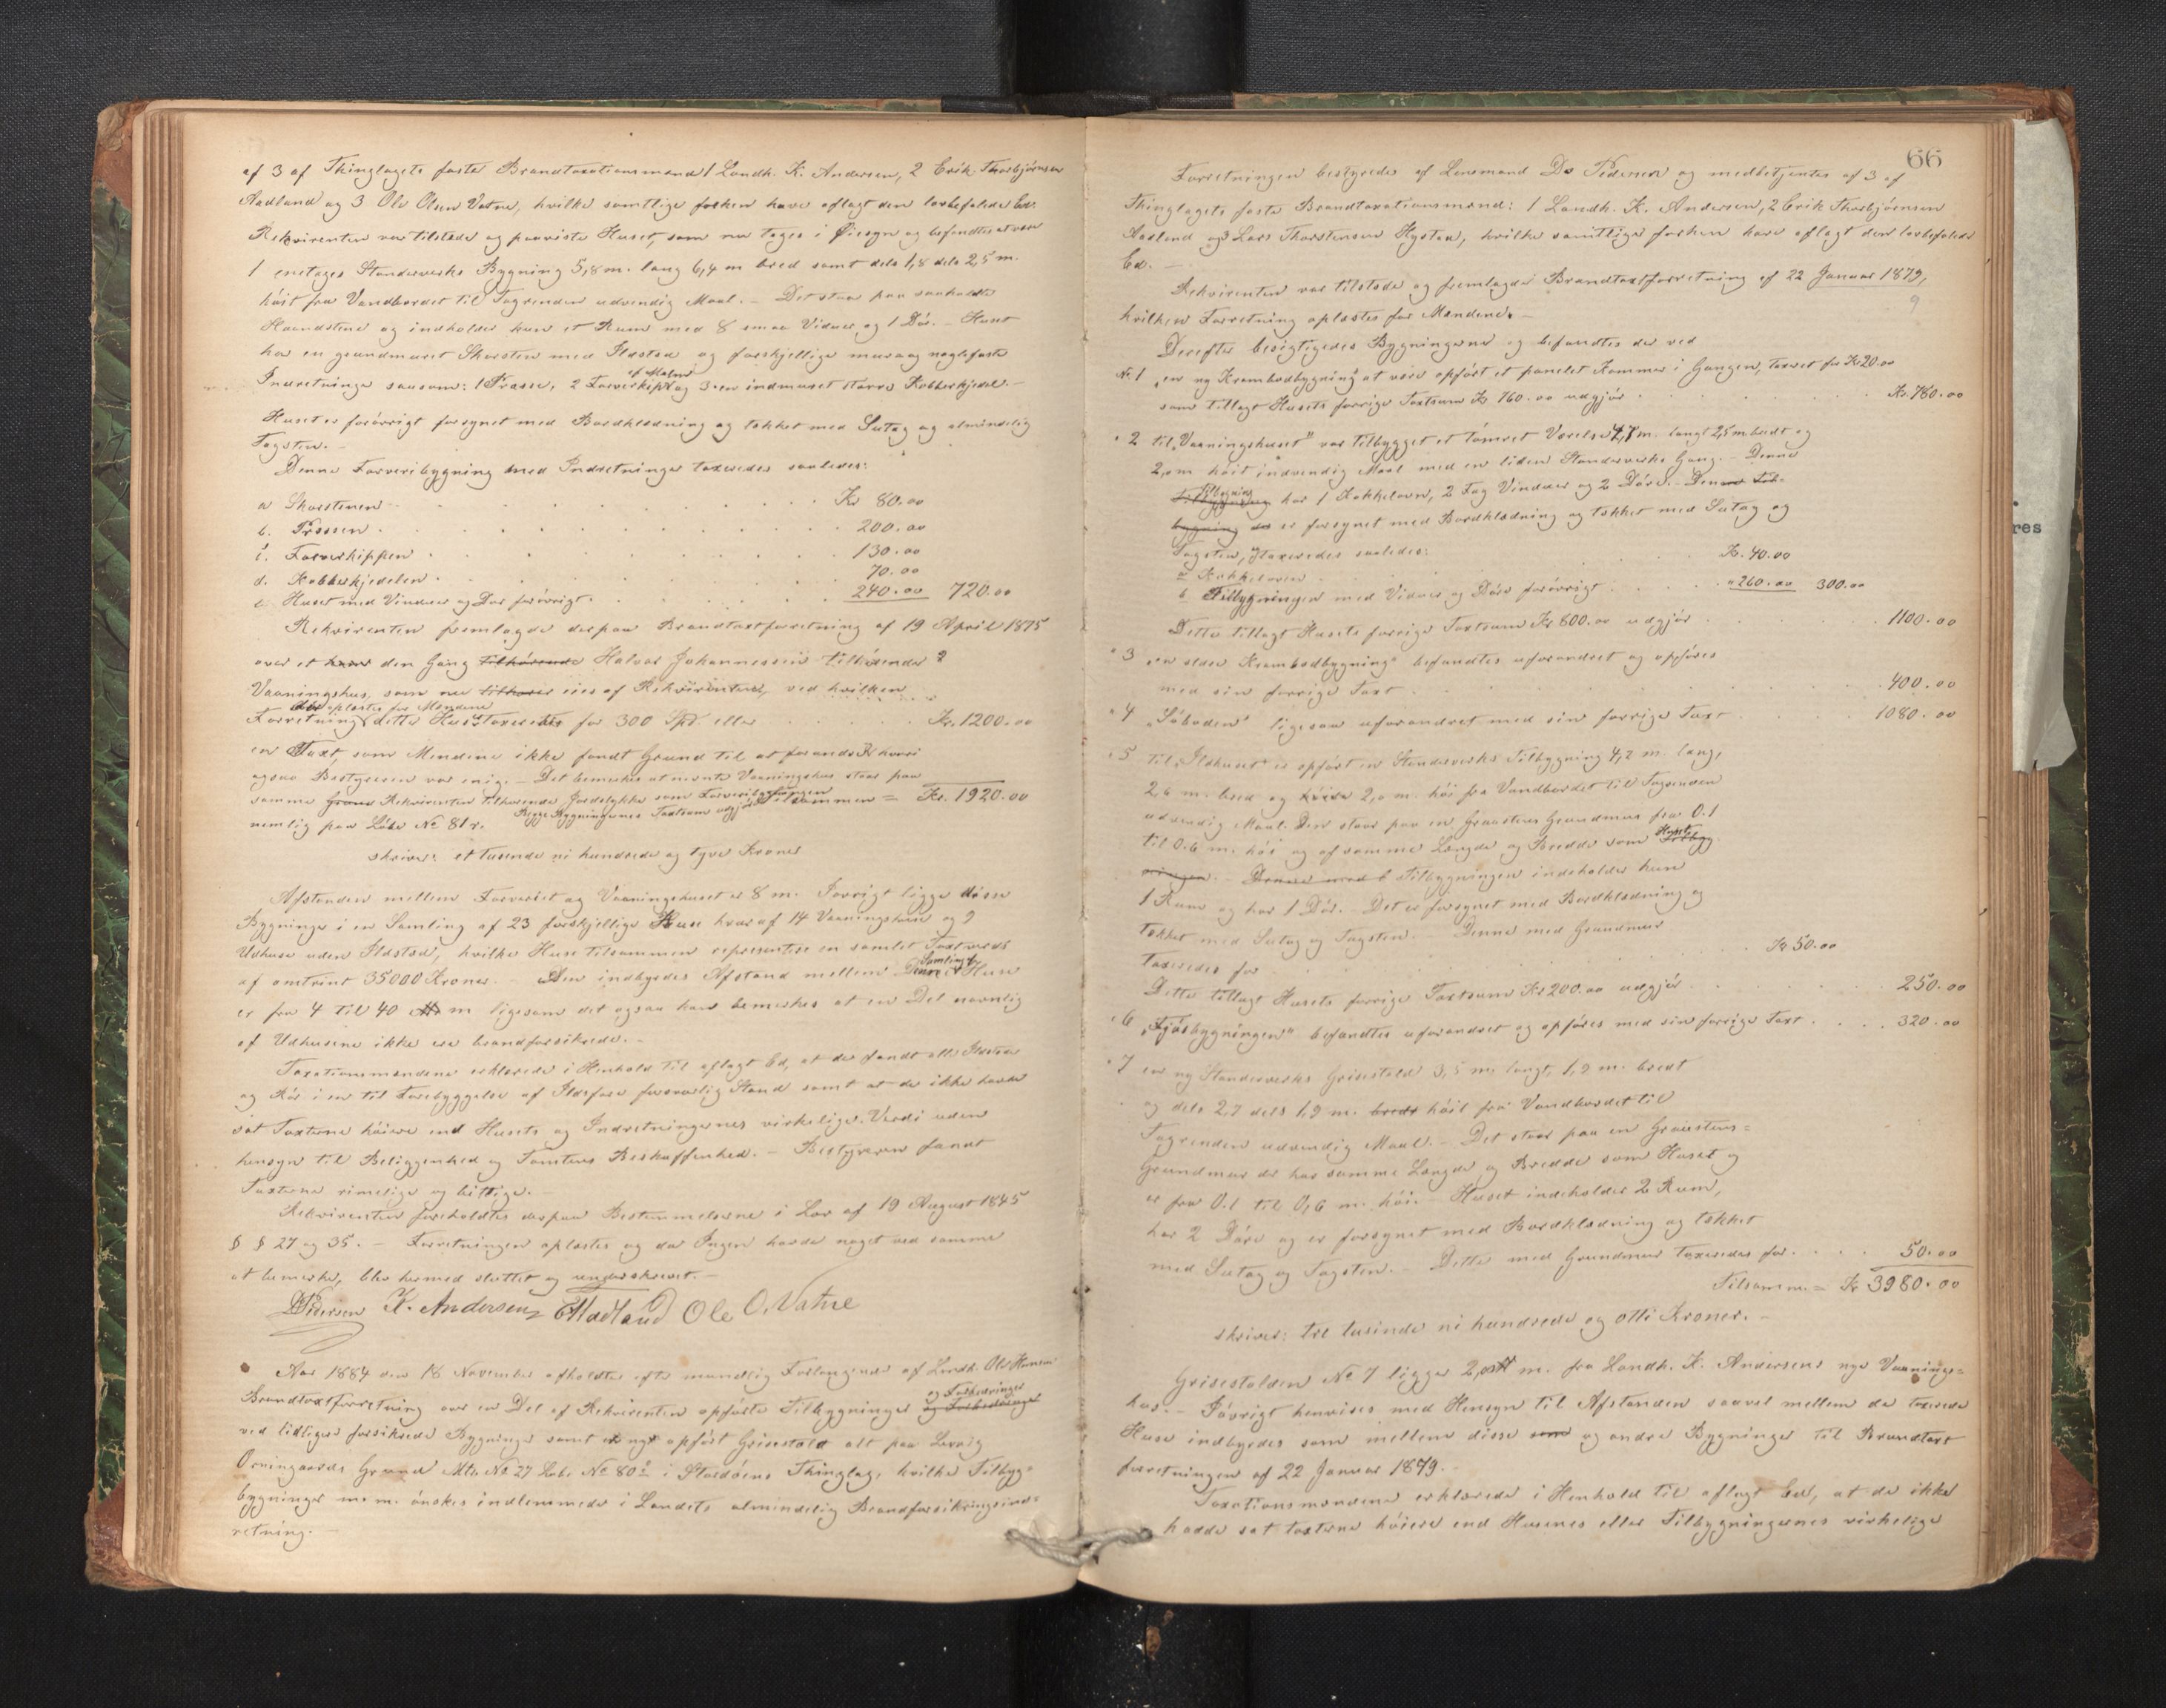 af 3 af Thinglagets faste Brandtaxationsmænd 1 Landh. K. Andersen, 2 Erik Thorbjørnsen
Aadland og 3 Ole Olsen Vatne, hvilke samtlige forhen have aflagt den lovbefalede Ed.
Rekvirenten var tilstede og paaviste Huset, som nu toges i Øiesyn og befandtes at være
1 enetages Standerverks Bygning 5,8 m. lang 6,4 m bred samt dels 1,8 dels 2,5 m.
høit fra Vandbordet til Tagrenden udvendig Maal. – Det staar paa
og indholder kun et Rum med 8 smaa Viduer og 1 Dør. – Huset
har en grundmuret Skorsten med Ildsted og forskjellige mur og naglefaste
Indretninger saasom: 1 Presse, 2 Farverkipper af Malm og 3 en indmuret større Kobberkjedel. –
Huset er forøvrigt forsynet med Bordklædning og tækket med Sutag og almindelig
Tagsten. –
Denne Farveribygning med Indretninger taxeredes saaledes:
a Skorstenen Kr 80.00
b. Pressen 200.00
c. Farverkippen 130.00
d. Kobberkjedelen 70.00
e. Huset med Vinduer og Dør forøvrigt 240.00 720.00
Rekvirenten fremlagde derpaa Brandtaxtforretning af 19 April 1875
over et den Gang tilhørende Halvor Johannessen tilhørende
Vaaningshus, som nu tilhører eies af Rekvirenten, ved hvilken
Forretning der oplæstes for Mændene dette Hus taxeredes for 300 Spd. eller Kr. 1200.00
en Taxt, som Mændene ikke fandt Grund til at forandre hvori
ogsaa Bestyreren var enig. – Det bemerkes at nævnte Vaaningshus staar paa
samme Grund Rekvirenten tilhørende Jordstykke som Farveribygningen
nemlig paa Løbe No 81 r. Begge Bygningernes Taxtsum udgjør tilsammen = Kr. 1920.00
skriver: et tusende ni hundrede og tyve Kroner
Afstanden mellem Farveriet og Vaaningshuset er 8 m. Forøvrigt ligge disse
Bygninger i en Samling af 23 forskjellige Huse hvoraf 14 Vaaningshuse og 9
Udhuse uden Ildsted, hvilke Huse tilsammen representere en samlet Taxtværdi
af omtrent 35000 Kroner. Den indbyrdes Afstand mellem Samlingens Huse
er fra 4 til 40 m ligesom det ogsaa kan bemerkes at en Del navnlig
af Udhusene ikke ere brandforsikrede. –
Taxationsmændene erklærede i Henhold til aflagt Ed, at de fandt alle Ildsteder
og Rør i en til Forebyggelse af Ildsfare forsvarlig Stand samt at de ikke havde
sat Taxterne høiere end Husets og Indretningernes virkelige Verdi uden
hensyn til Beliggenhed og Tomtens Beskaffenhed. – Bestyreren fandt
Taxterne rimelige og billige. –
Rekvirenten foreholdtes derpaa Bestemmelserne i Lov af 19 August 1845
§ § 27 og 35. – Forretningen oplæstes og da Ingen havde noget ved samme
at bemerke, blev hermed sluttet og underskrevet. –
DPedersen K. Andersen EAadland Ole O. Vatne
Aar 1884 den 18 November afholdtes efter mundlig Forlangende af Landh. Ole Hansen
Brandtaxtforretning over en Del af Rekvirenten opførte Tilbygninger og Forbedringer og Forbedringer
ved tidligere forsikrede Bygninger samt en ny opført Grisestald alt paa Lervig
Grund Mtr. No 27 Løbe No 80 i Stordøens Thinglag, hvilke Tilbyg-
bygninger m.m. ønskes indlemmede i Landets almindelig Brandforsikringsind-
retning. –
66
Forretningen bestyredes af Lensmand Ds Pedersen og medbetjentes af 3 af
Thinglagets faste Brandtaxationsmænd: 1 Landh. K. Andersen, 2 Erik Thorbjørnsen
Aadland og 3 Lars Thorstensen Hystad, hvilke samtlige forhen have aflagt den lovbefalede
Ed. –
Rekvirenten var tilstede og fremlagde Brandtaxtforretning af 22 Januar 1879,
9
hvilken Forretning oplæstes for Mændene. –
Derefter besigtigedes Bygningerne og befandtes der ved
No. 1 "en ny Krambodbygning" at være opført et panelet Kammer i Gangen, taxeret for Kr 20.00
som tillagt Husets forrige Taxtsum Kr 760.00 udgjør Kr. 780.00
" 2 til "Vaaningshuset" var tilbygget et tømret Værelse 4,7 m. langt 2,5 m. bredt og
2,0 m høit indvendig Maal med en liden Standerverks Gang. – Denne
Tilbygning har 1 Kakkelovn, 2 Fag Vinduer og 2 Døre. – Denne Til-
bygning er forsynet med Bordklædning og tækket med Sutag og
Tagsten, og taxeredes saaledes:
a Kakkelovnen Kr. 40.00
b Tilbygningen med Viduer og Døre forøvrigt " 260.00 300.00
Dette tillagt Husets forrige Taxtsum Kr 800.00 udgjør 1100.00
" 3 "en eldre Krambodbygning" befandtes uforandret og opføres
med sin forrige Taxt 400.00
" 4 "Søboden" ligesaa uforandret med sin forrige Taxt 1080.00
" 5 til "Ildhuset" er opført en Standerverks Tilbygning 4,2 m. lang,
2,6 m. bred og 2,0 m. høi fra Vandbordet til Tagrenden
udvendig Maal. Den staar paa en Graastens Grundmur fra 0.1
til 0.6 m. høi og af samme Længde og Bredde som Huset Tilbyg-
ningen. – Denne med Tilbygningen indeholder kun
1 Rum og har 1 Dør. Det er forsynet med Bordklædning og
tækket med Sutag og Tagsten. Denne med Grundmur
taxeredes for Kr 50.00
Dette tillagt Husets forrige Taxtsum Kr 200.00 udgjør 250.00
" 6 "Fjøsbygningen" befandtes uforandret og opføres med sin forrige Taxt 320.00
" 7 en ny Standerverks Grisestald 3,5 m. langt, 1,2 m. bredt
og dels 2,7 dels 1,9 m. bredt høit fra Vandbordet til
Tagrenden udvendig Maal. – Det staar paa en Graastens-
Grundmur der har samme Længde og Bredde som Huset og
er fra 0.1 til 0,6 m. høi. – Huset indeholder 2 Rum,
har 2 Døre og er forsynet med Bordklædning og tækket
med Sutag og Tagsten. – Dette med Grundmur taxeredes for 50.00
Tilsamm. = Kr 3980.00
skriver: tre tusinde ni hundrede og otti Kroner. –
Grisestalden No 7 ligger 2,0 m. fra Landh. K. Andersens nye Vaanings-
hus. – Iøvrigt henvises med Hensyn til Afstanden saavel mellem de taxerede
Huse indbyrdes som mellem disse som og andre Bygninger til Brandtaxt
forretningen af 22 Januar 1879. –
Taxationsmændene erklærede i Henhold til aflagt Ed, at de ikke
hadde sat taxterne høiere end Husenes eller Tilbygningernes virkelige
res